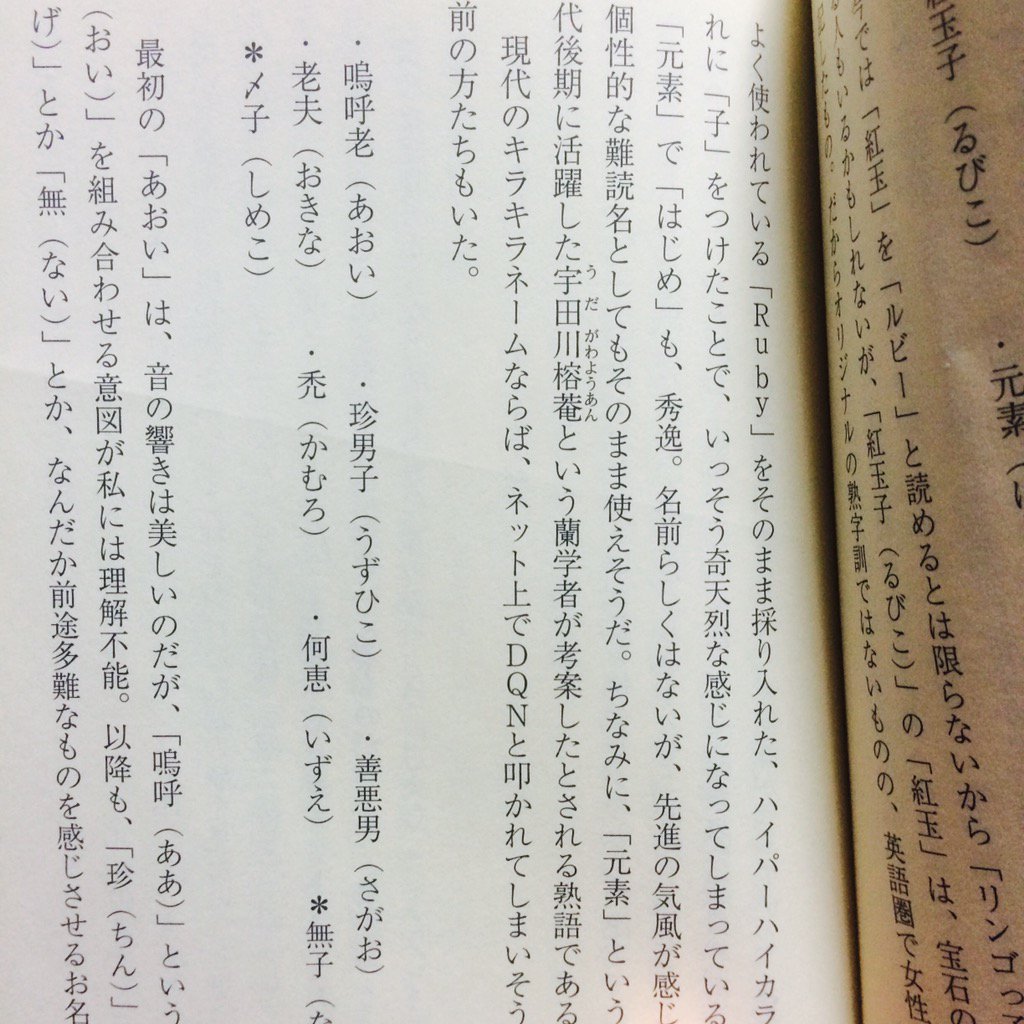 紅玉子（るびこ）　・元素（は
今では「紅玉」を「ルビー」と読めるとは限らないから「リンゴって
る人もいるかもしれないが、「紅玉子（るびこ）」の「紅玉」は、宝石の
したもの。だからオリジナルの熟字訓ではないものの、英語圏で女性
よく使われている「Ruby」をそのまま採り入れた、ハイパーハイカラ
れに「子」をつけたことで、いっそう奇天烈な感じになってしまっている
「元素」で「はじめ」も、秀逸。名前らしくはないが、先進の気風が感じ
個性的な難読名としてもそのまま使えそうだ。ちなみに、「元素」という
代後期に活躍した宇田川榕菴という蘭学者が考案したとされる熟語である
うだがわようあん
現代のキラキラネームならば、ネット上でDQNと叩かれてしまいそう
前の方たちもいた。
・嗚呼老（あおい）　・珍男子（うずひこ）　・善悪男（さがお）
・老夫（おきな）　・禿（かむろ）　・何恵（いずえ）　＊無子（な
＊〆子（しめこ）
最初の「あおい」は、音の響きは美しいのだが、「嗚呼（ああ）」という
（おい）」を組み合わせる意図が私には理解不能。以降も、「珍（ちん）」
げ）」とか「無（ない）」とか、なんだか前途多難なものを感じさせるお名